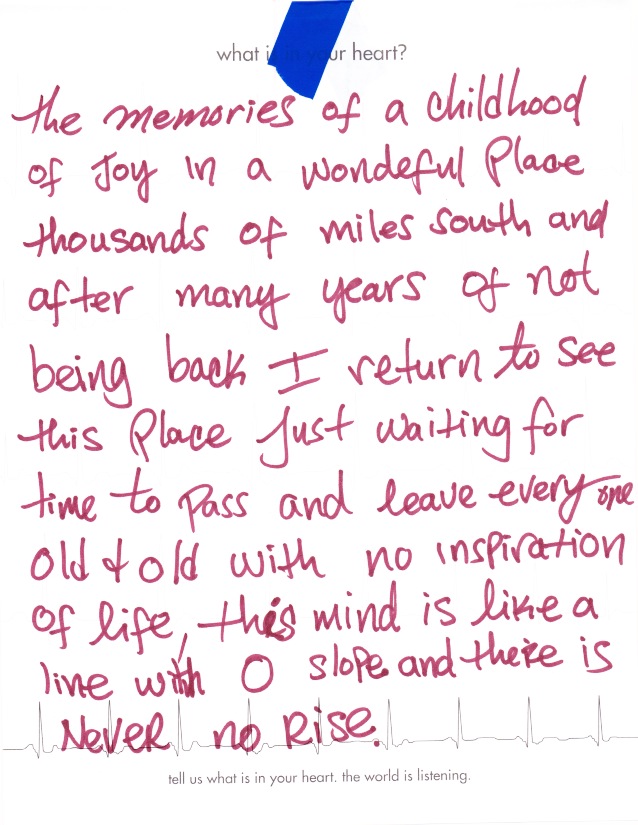 what is in your heart?
the memories of a childhood
of Joy in a wondeful Place
thousands of miles south and
after many years of not
being back I return to see
this Place Just waiting for
time to pass and leave every one
old & old with no inspiration
of life, this mind is like a
line with 0 slope and there is
Never no Rise.
tell us what is in your heart. the world is listening.